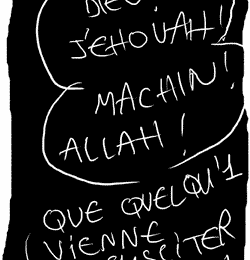 DIEU!
J'EHOVAH!
MACHIN!
ALLAH!
QUE QUELQU'1
VIENNE